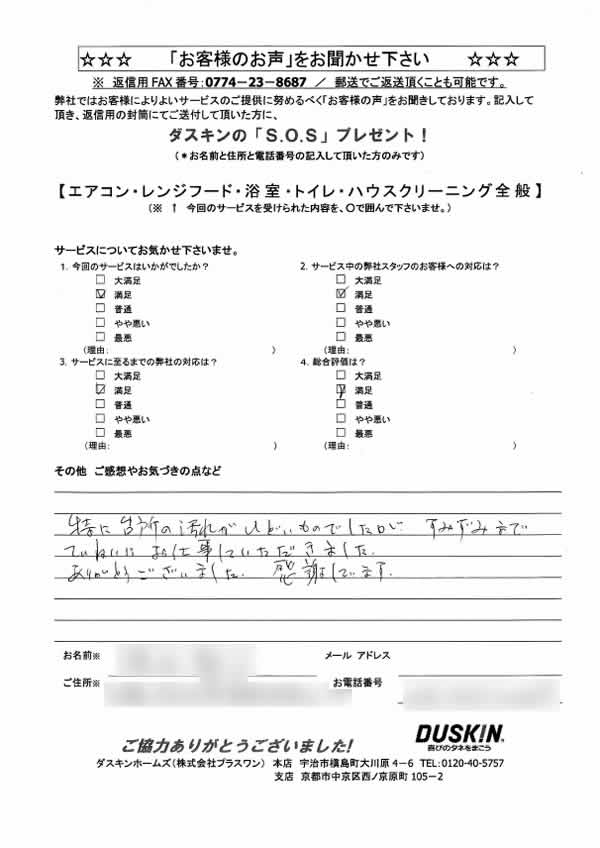 ☆☆☆ 「お客様のお声」をお聞かせ下さい ☆☆☆
※ 返信用FAX番号:0774-23-8687 / 郵送でご返送頂くことも可能です。
弊社ではお客様によりよいサービスのご提供に努めるべく「お客様の声」をお聞きしております。記入して
頂き、返信用の封筒にてご送付して頂いた方に、
ダスキンの「S.O.S」プレゼント!
(*お名前と住所と電話番号の記入して頂いた方のみです)
【エアコン・レンジフード・浴室・トイレ・ハウスクリーニング全般】
(※ ↑ 今回のサービスを受けられた内容を、○で囲んで下さいませ。)
サービスについてお気かせ下さいませ。
1. 今回のサービスはいかがでしたか?
□ 大満足
☑ 満足
□ 普通
□ やや悪い
□ 最悪
(理由: )
2. サービス中の弊社スタッフのお客様への対応は?
□ 大満足
☑ 満足
□ 普通
□ やや悪い
□ 最悪
(理由: )
3. サービスに至るまでの弊社の対応は?
□ 大満足
☑ 満足
□ 普通
□ やや悪い
□ 最悪
(理由: )
4. 総合評価は?
□ 大満足
☑ 満足
□ 普通
□ やや悪い
□ 最悪
(理由: )
その他 ご感想やお気づきの点など
特に台所の汚れがひどいものでしたが、すみずみまで
ていねいにお仕事していただきました。
ありがとうございました。 感謝してます。
お名前※
メール アドレス
ご住所※
お電話番号
ご協力ありがとうございました!
DUSKIN
喜びのタネをまこう
ダスキンホームズ(株式会社プラスワン) 本店 宇治市槇島町大川原4-6 TEL:0120-40-5757
支店 京都市中京区西ノ京原町105-2